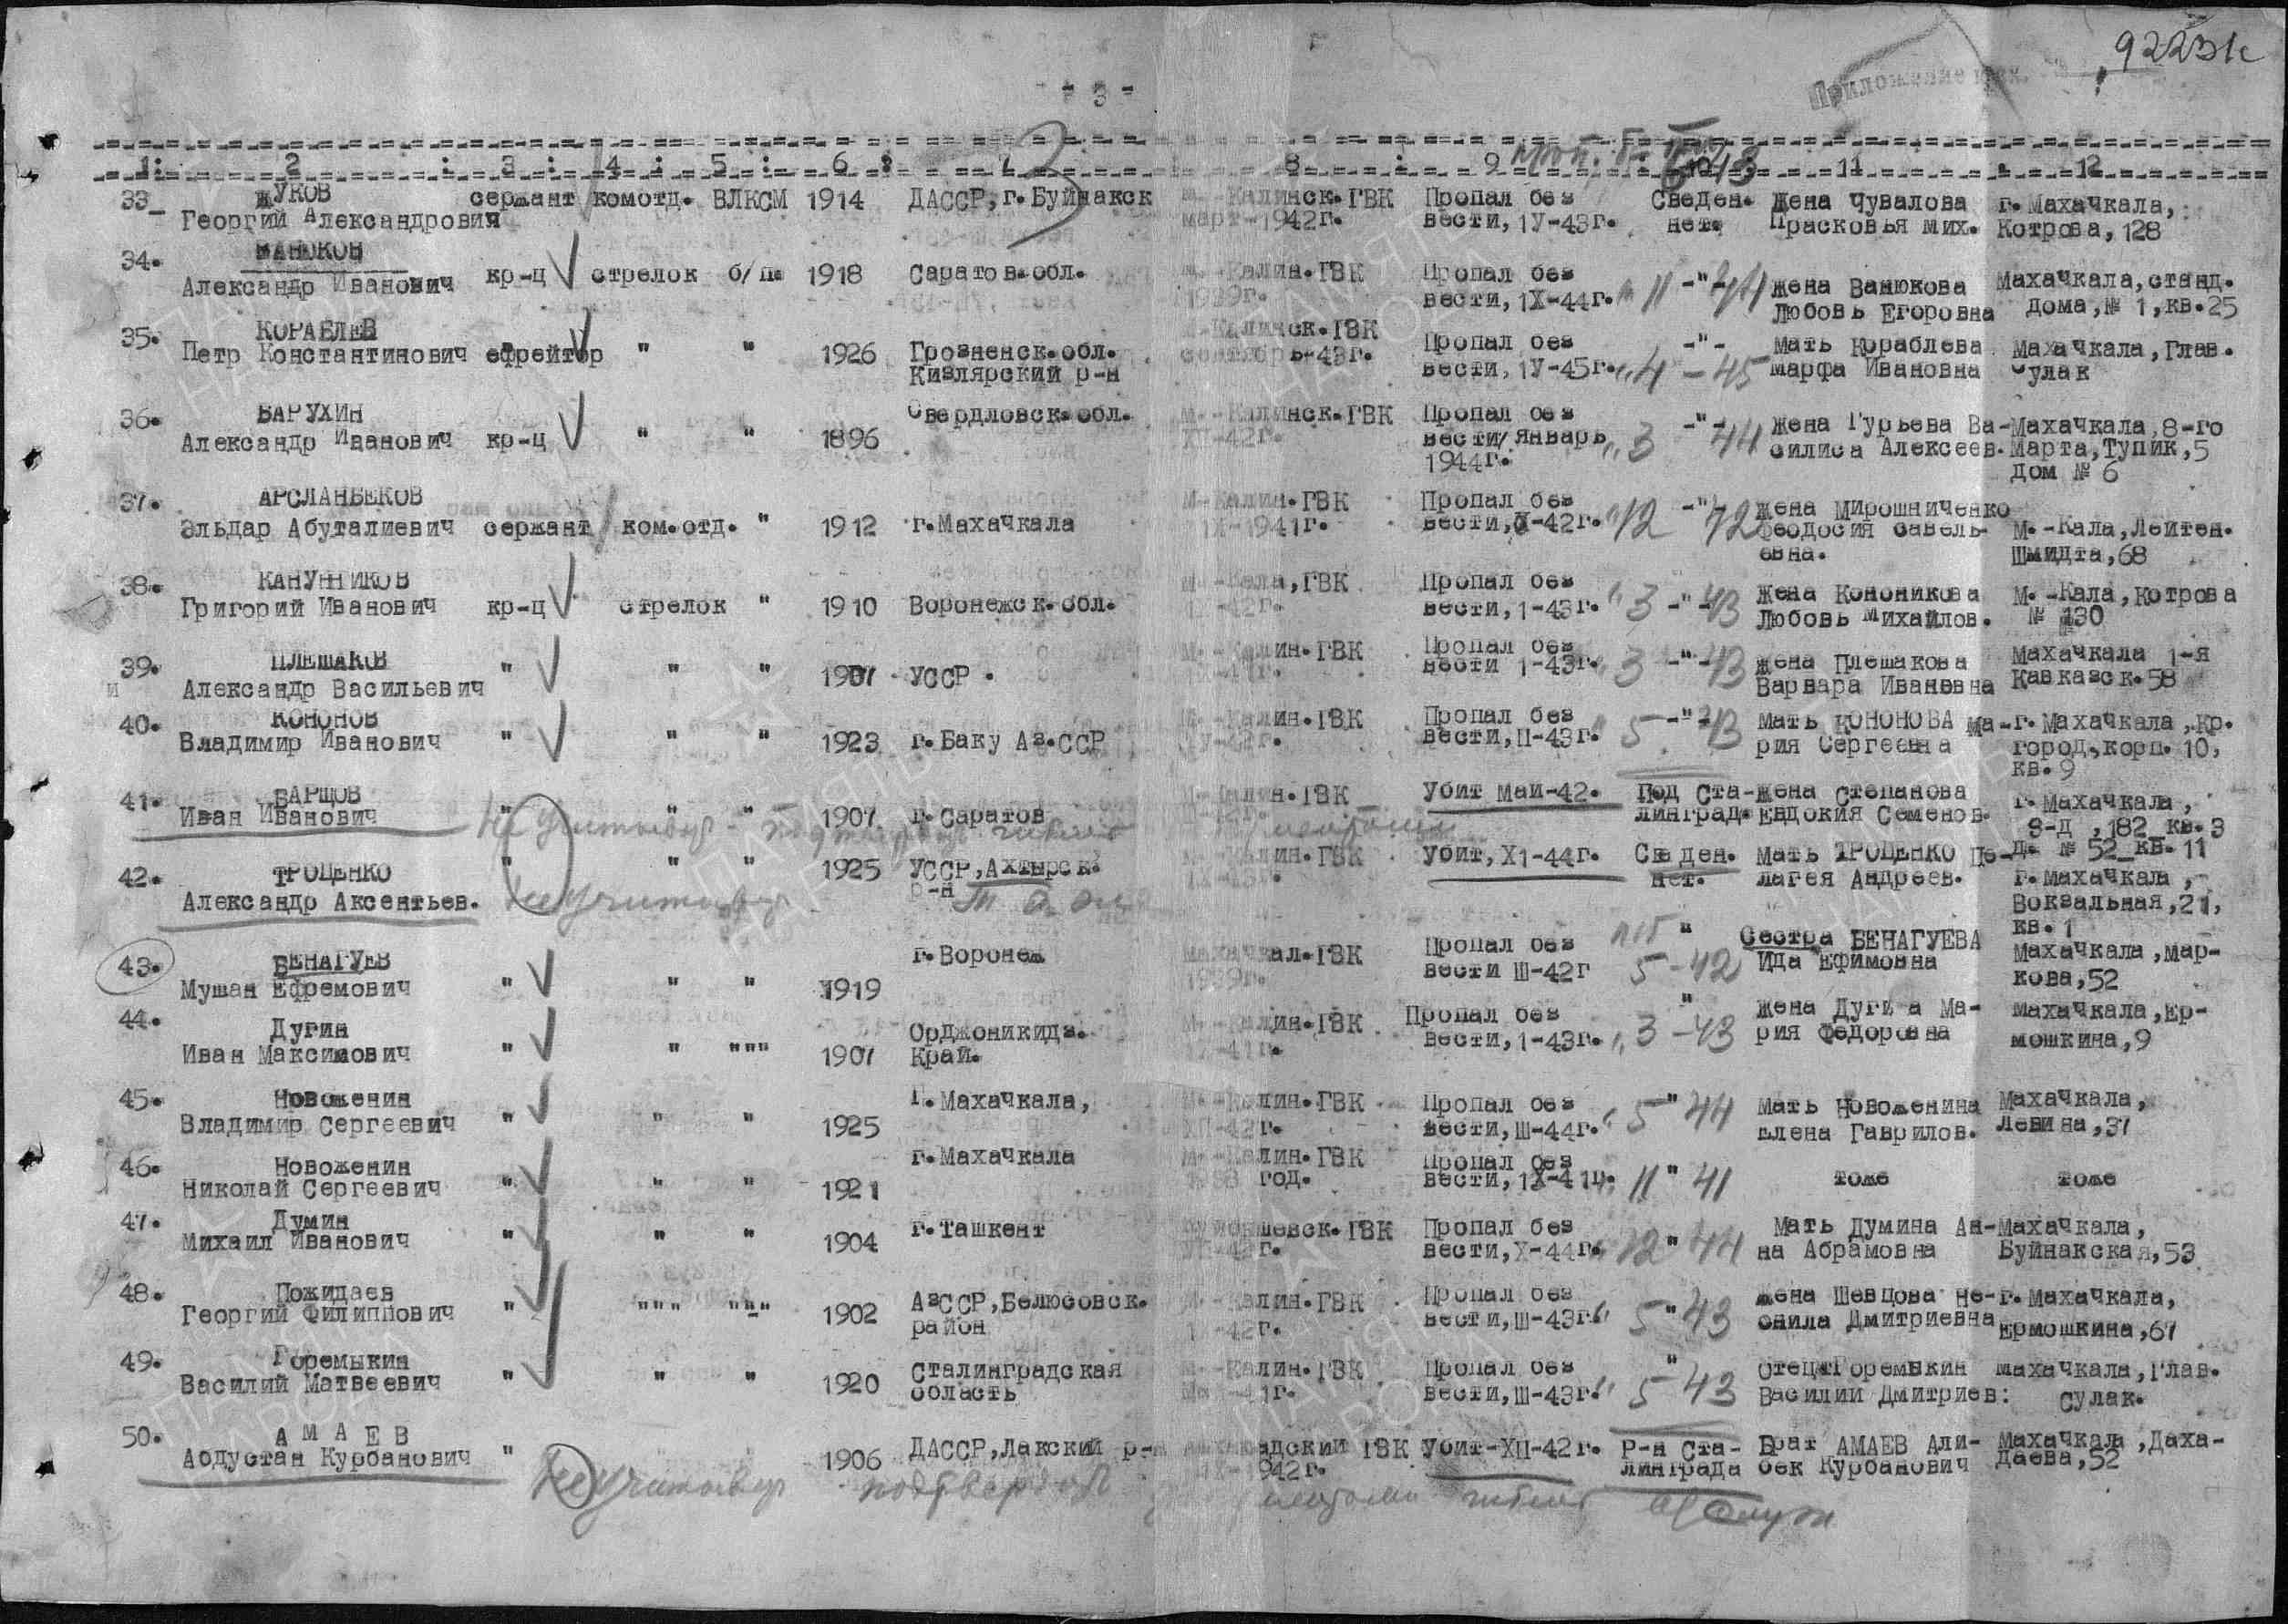 92231с
Приложение
- 3 -
1: 2 : 3 : 4 : 5 : 6 : 7 8 : 9 10 : 11 : 12
33_ ЖУКОВ Георгий Александрович сержант комотд. ВЛКСМ 1914 ДАССР, г.Буйнакск М.-Калинск.ГВК март-1942г. Пропал без вести, 1У-43г. Сведен. нет. Жена Чувалова Прасковья Мих. г.Махачкала, Котрова, 128
34. ВАНЮКОВ Александр Иванович кр-ц стрелок б/п. 1918 Саратов.обл. М.-Калин.ГВК 1939г. Пропал без вести, 1Х-44г. 11 -"- 44 Жена Ванюкова Любовь Егоровна Махачкала, станд. дома, № 1, кв.25
35. КОРАБЛЕВ Петр Константинович ефрейтор " " 1926 Грозненск.обл. Кизлярский р-н М-Калинск.ГВК сентябрь-43г. Пропал без вести, 1У-45г. -"- 4 - 45 Мать Кораблева Марфа Ивановна Махачкала, Глав. Сулак
36. ВАРУХИН Александр Иванович кр-ц " " 1896 Свердловск.обл. М.-Калинск.ГВК ХП-42г. Пропал без вести, январь 1944г. -"- 3 44 Жена Гурьева Ва-силиса Алексеев. Махачкала, 8-го Марта, Тупик, 5 дом № 6
37. АРСЛАНБЕКОВ Эльдар Абуталиевич сержант ком.отд. " 1912 г.Махачкала М-Калин.ГВК 1Х-1941г. Пропал без вести, Х-42г. 12 -"- 42 Жена Мирошниченко Феодосия Савель-евна. М.-Кала, Лейтен. Шмидта, 68
38. КАНУННИКОВ Григорий Иванович кр-ц стрелок " 1910 Воронежск.обл. М-Кала, ГВК -42г. Пропал без вести, 1-43г. 3 -"- 43 Жена Кононикова Любовь Михайлов. М.-Кала, Котрова № 130
39. ПЛЕШАКОВ Александр Васильевич " " " 1907 УССР. М.-Калин.ГВК 1Х-41г. Пропал без вести 1-43г. 3 -"- 43 Жена Плешакова Варвара Ивановна Махачкала 1-я Кавказск.58
40. КОНОНОВ Владимир Иванович " " " 1923 г.Баку Аз.ССР М.-Калин.ГВК -42г. Пропал без вести, П-43г. 5 -"- 43 Мать КОНОНОВА Ма-рия Сергеевна г.Махачкала, Кр. город, корп. 10, кв.9
41. БАРЩОВ Иван Иванович " " " 1907 г.Саратов М-Калин.ГВК -42г. Убит май-42. Под Ста-линград. Жена Степанова Евдокия Семенов. г.Махачкала, З-д, 182 кв.3
Не учитывать
42. ТРОЦЕНКО Александр Аксентьев. " " " 1925 УССР, Ахтырск. р-н М.-Калин.ГВК 1Х-43г. Убит, Х1-44г. Сведен. нет. Мать ТРОЦЕНКО Пе-лагея Андреев. д. № 52 кв. 11 г.Махачкала, Вокзальная, 21, кв. 1
Не учитывать
43. БЕНАГУЕВ Мушан Ефремович " " " 1919 г.Воронеж Махачкал.ГВК 1939г. Пропал без вести Ш-42г " 5 - 42 Сестра БЕНАГУЕВА Ида Ефимовна Махачкала, Мар-кова, 52
44. Дугин Иван Максимович " " """ 1907 Орджоникидз. Край. М.-Калин.ГВК -41г. Пропал без вести, 1-43г. " 3 - 43 Жена Дугина Ма-рия Федоровна Махачкала, Ер-мошкина, 9
45. Новоженин Владимир Сергеевич " " " 1925 Г.Махачкала, М.-Калин.ГВК ХП-42г. Пропал без вести, Ш-44г. 5 " 44 Мать Новоженина Елена Гаврилов. Махачкала, Левина, 37
46. Новоженин Николай Сергеевич " " " 1921 г.Махачкала М.-Калин.ГВК год. Пропал без вести, 1Х-41г. 11 " 41 тоже тоже
47. Думин Михаил Иванович " " " 1904 г.Ташкент Куйбышевск.ГВК -42г. Пропал без вести, Х-44г. 12 " 44 Мать Думина Ан-на Абрамовна Махачкала, Буйнакская, 53
48. Пожидаев Георгий Филиппович " """ """ 1902 АзССР, Белюсовск. район М.-Калин.ГВК -42г. Пропал без вести, Ш-43г. 5 " 43 Жена Шевцова Не-онила Дмитриевна г.Махачкала, Ермошкина, 67
49. Горемыкин Василий Матвеевич " " " 1920 Сталинградская область М.-Калин.ГВК -41г. Пропал без вести, Ш-43г. 5 " 43 Отец Горемыкин Василий Дмитриев: Махачкала, Глав. Сулак.
50. АМАЕВ Аодустан Курбанович " 1906 ДАССР, Лакский р-н ГВК 1942г. Убит-ХП-42г. Р-н Ста-линграда Брат АМАЕВ Али-бек Курбанович Махачкала, Даха-даева, 52
Не учитывать